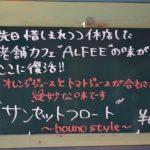 先日惜しまれつつ休店した
老舗カフェ"ALFEE"の味が
ここに復活!!
オレンジジュースとトマトジュースが合わさった
絶妙な味です
"サンセットフロート"
〜bouno style〜